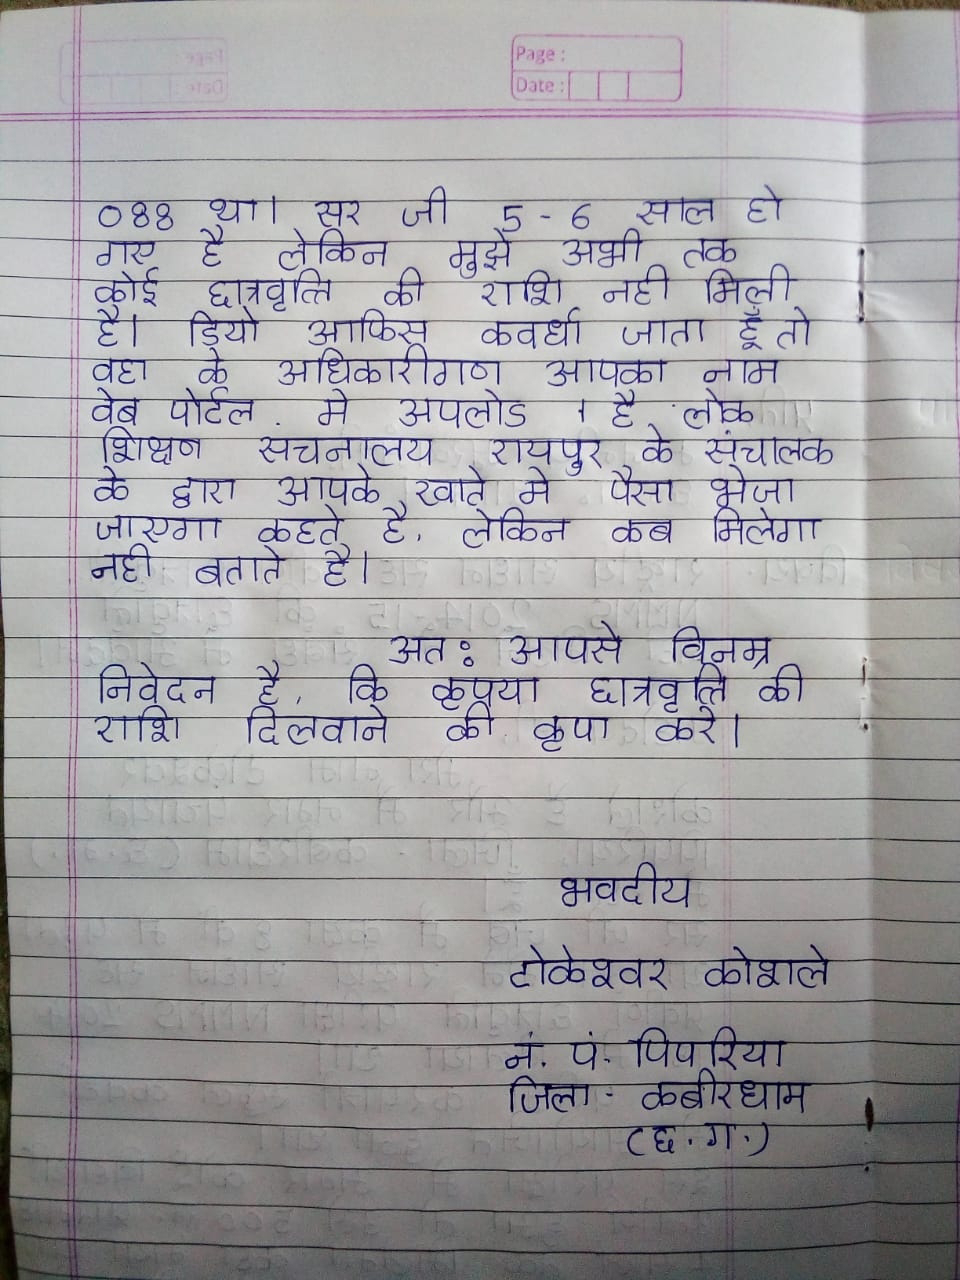 Page :
Date :
088 था। सर जी 5-6 साल हो
गए है लेकिन मुझे अभी तक
कोई छात्रवृत्ति की राशि नही मिली
है। डियो आफिस कवर्धा जाता हूँ तो
वहा के अधिकारीगण आपका नाम
वेब पोर्टल मे अपलोड है लोक
शिक्षण सचनालय रायपुर के संचालक
के द्वारा आपके खाते मे पैसा भेजा
जाएगा कहते है, लेकिन कब मिलेगा
नही बताते है।
अतः आपसे विनम्र
निवेदन है, कि कृपया छात्रवृत्ति की
राशि दिलवाने की कृपा करे।
भवदीय
टोकेश्वर कोशले
नं. पं. पिपरिया
जिला - कबीरधाम
(छ.ग.)